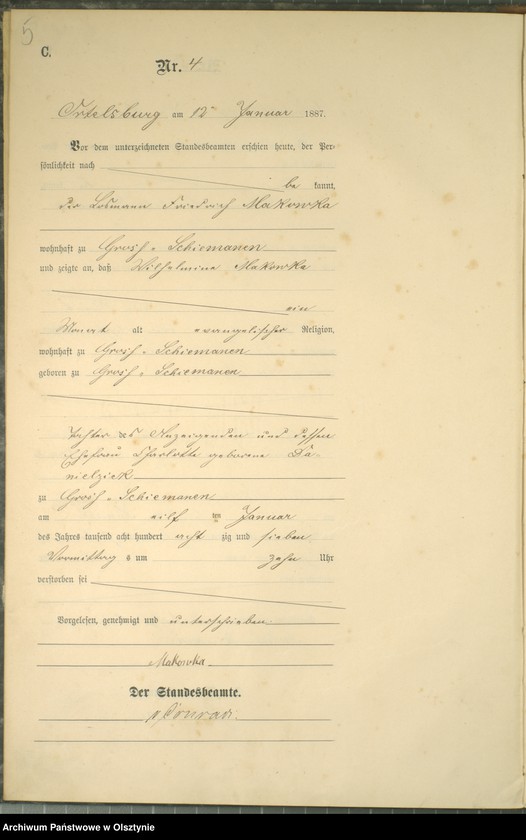 5
C.
Nr. 4
Ortelsburg am 12ten Januar 1887.
Vor dem unterzeichneten Standesbeamten erschien heute, der Per-
sönlichkeit nach
be kannt,
der Losmann Friedrich Makowka
wohnhaft zu Groß-Schiemanen
und zeigte an, daß Wilhelmine Makowka
ein
Monat alt evangelischer Religion,
wohnhaft zu Groß-Schiemanen
geboren zu Groß-Schiemanen
Tochter des Anzeigenden und dessen
Ehefrau Charlotte geborene Da-
nielzick
zu Groß-Schiemanen
am eilf ten Januar
des Jahres tausend acht hundert acht zig und sieben
Vormittag s um zehn Uhr
verstorben sei
Vorgelesen, genehmigt und unterschrieben
Makowka
Der Standesbeamte.
Conrad.
Archiwum Państwowe w Olsztynie